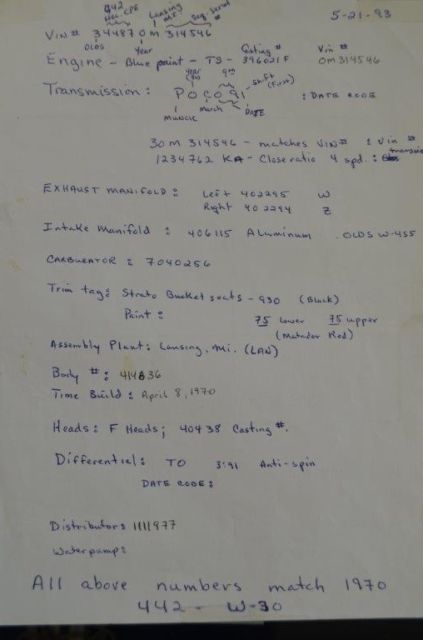 5-21-93
442 Lansing
Hol. CPE MF. Seq. Serial #
VIN# 344870M 314546
OLDS Year Casting # Vin #
Engine - Blue paint - TS - 396021F 0M314546
year 1st shift (First)
Transmission: P0C091 : DATE CODE
MUNCIE March DATE
30M 314546 - matches VIN# : Vin #
1234762 KA - Close ratio 4 spd. :
EXHAUST MANIFOLD: Left 402295 W
Right 402294 Z
Intake Manifold: 406115 Aluminum OLDS W-455
CARBURATOR: 7040256
Trim tag: Strato Bucket seats - 930 (Black)
Paint: 75 lower 75 upper
(Matador Red)
Assembly Plant: Lansing, Mi. (LAN)
Body #: 414836
Time Build: April 8, 1970
Heads: F Heads; 40438 Casting #.
Differential: TO 3:91 Anti-spin
DATE CODE:
Distributor: 1111977
Waterpump:
All above numbers match 1970
442 - W-30